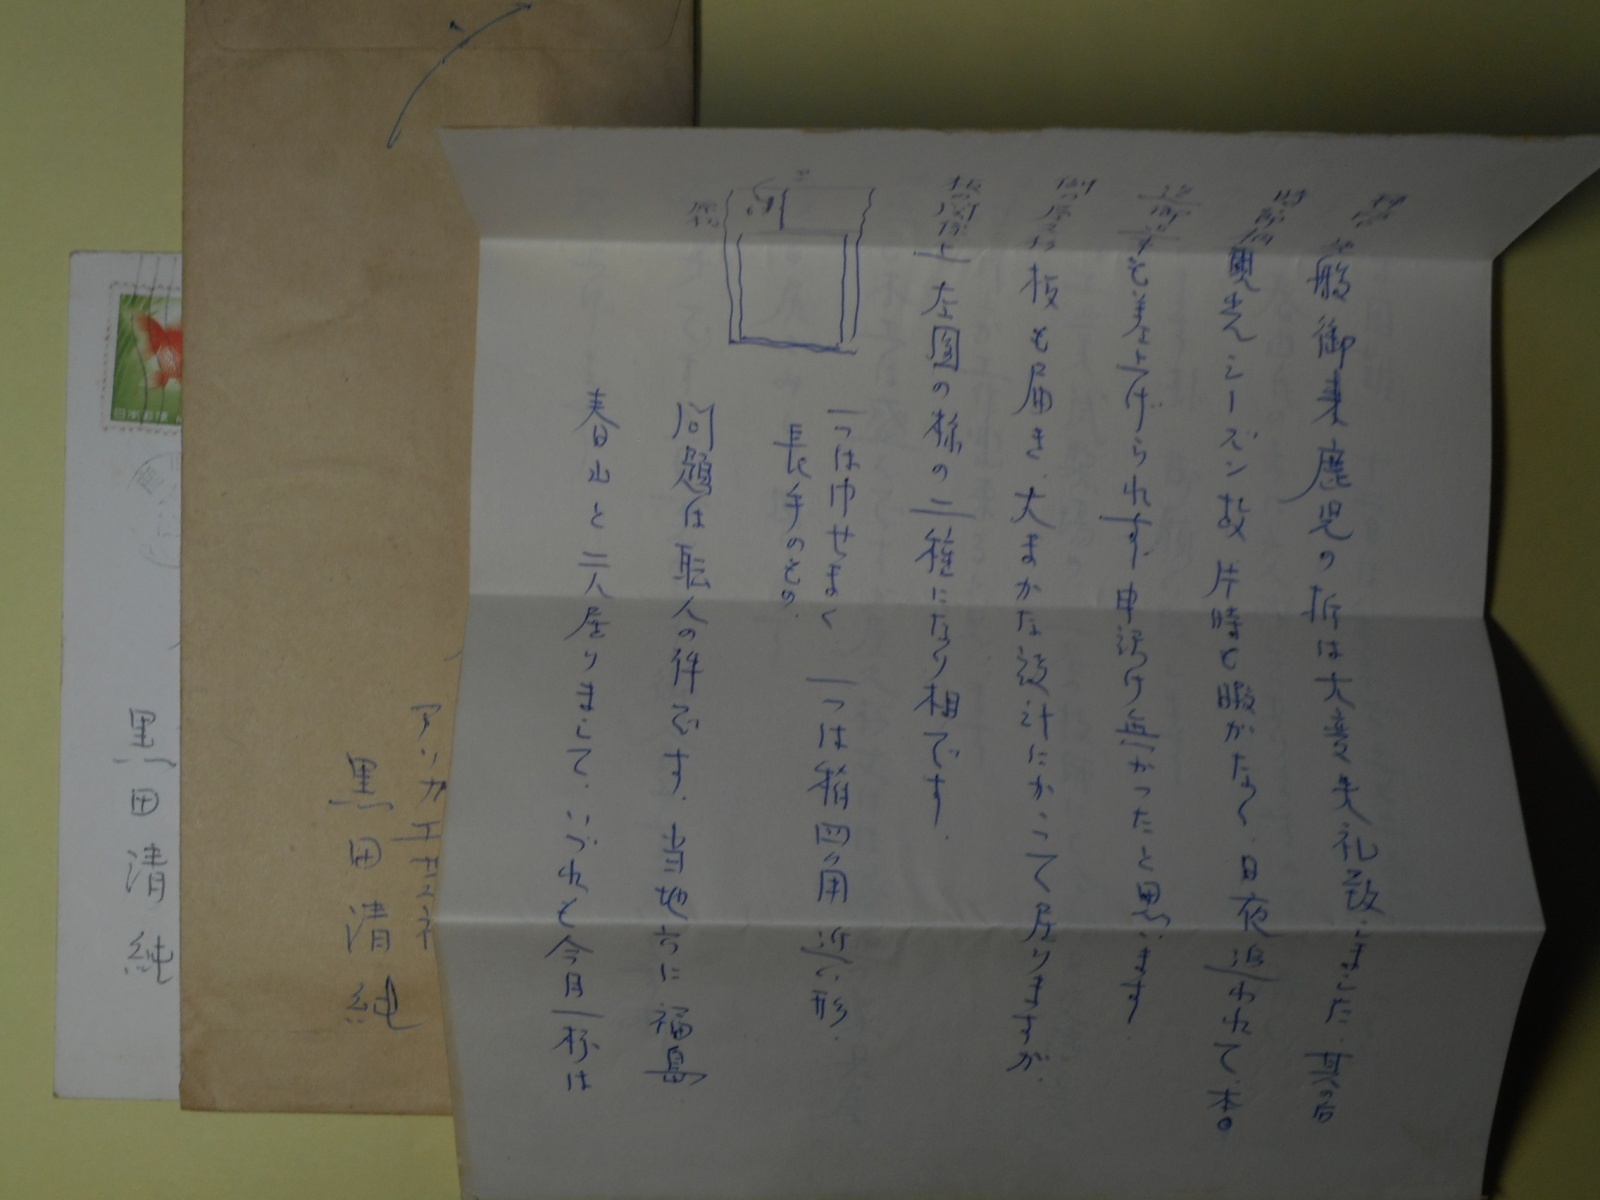 拝啓
過般御来鹿児の折は大変失礼致しました.其の后
時節柄観光シーズン故片時も暇がなく、日夜追われて、本日
迄御
も差上げられす、申訳け無かったと思います
側の尾
板も届き、大まかな設計にかゝって居りますが、
板の関係上左図の様の二種になり相です.
一つは巾せまく 一つは稍四角近い形.
長手のもの.
問題は職人の件です.当地方に福島
春日山と二人居りまして、いづれも今月一杯は
アソカエせス不
黒田清純
黒田清純
日本郵便